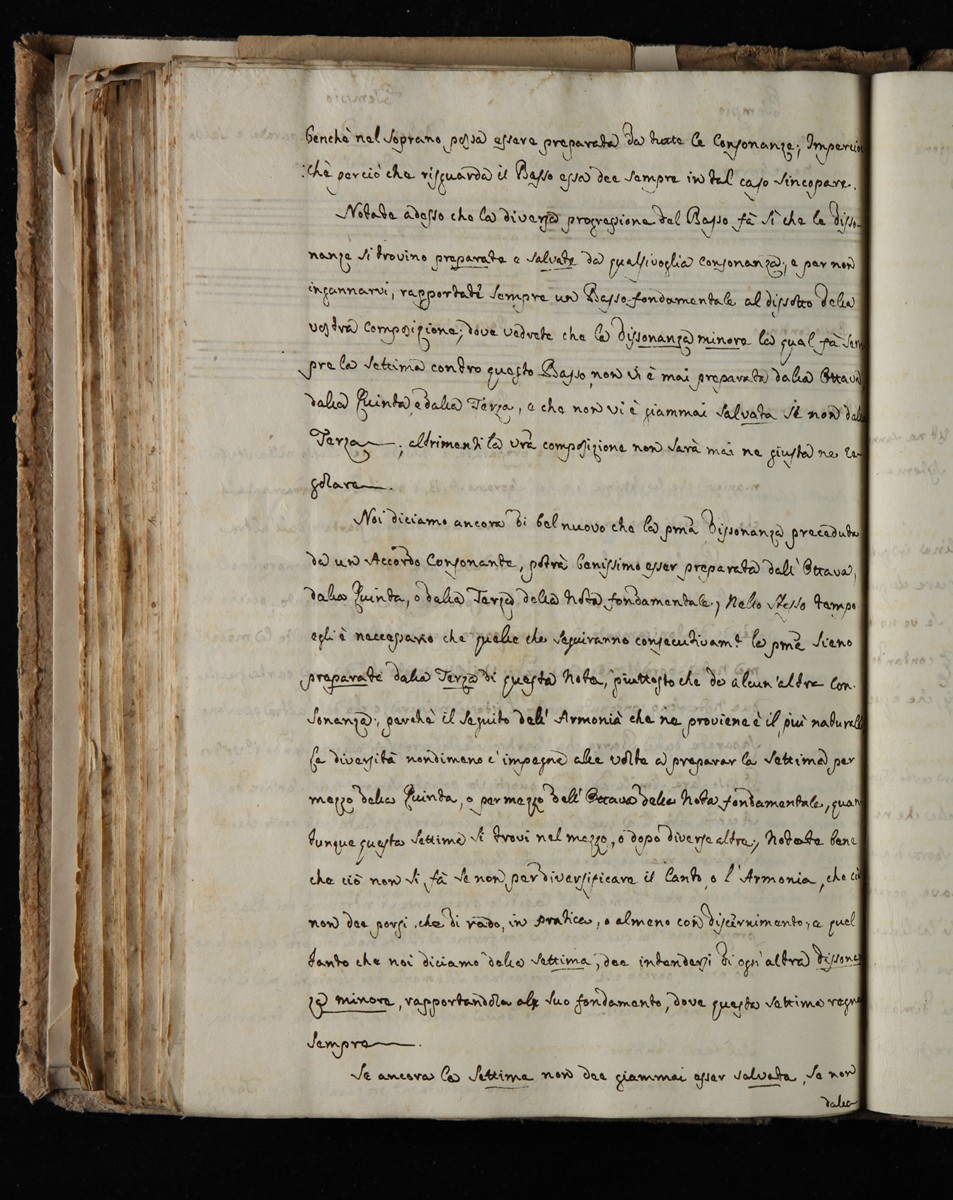 benchè nel soprano possa essere preparata da tutte le Consonanze; Imperciò
:chè perciò che risguarda il Basso essa dee sempre in tal caso sincopare.
Notate adesso che la diversa progressione del Basso fà sì che le disso-
nanze si trovino preparate e salvate da qualsivoglia consonanza, e per non
ingannarvi, rapportate sempre un Basso fondamentale al dissotto della
vostra composizione, dove vedrete che la dissonanza minore la qual fà sem
pre la settima contro questo Basso, non vi è mai preparata dalla Ottava
dalla Quinta, e dalla Terza, e che non vi è giammai salvata se non dalla
Terza; altrimenti la vrã composizione non sarà mai ne giusta ne re-
golare.
Noi diciamo ancora di bel nuovo che la pmã dissonanza preceduta
da un Accordo Consonante, potrà benissimo esser preparata dall'Ottava,
dalla Quinta, o dalla Terza della Nota fondamentale; Nello stesso tempo
egli è neccessario che quelle che seguiranno consecutivam.te le pmẽ sieno
preparate dalla Terza di questa Nota, piuttosto che da alcun'altra Con-
sonanza, perchè il seguito dell'Armonia che ne proviene è il più naturale
La diversità nondimeno c'impegna alle volte a preparar la settima per
mezzo della Quinta, o per mezzo dell'Ottava della Nota fondamentale, quan
tunque questa settima si trovi nel mezzo, o dopo diverse altre; Notate bene
che ciò non si fà se non per diversificare il Canto, o l'Armonia, che ciò
non dee porsi che di rado, in pratica, o almeno con discernimento; e quel
tanto che noi diciamo della settima, dee intendersi di ogn'altra dissonan
za minore, rapportandola al suo fondamento, dove questa settima regna
sempre.
Se ancora la settima non dee giammai esser salvata, se non
dalla